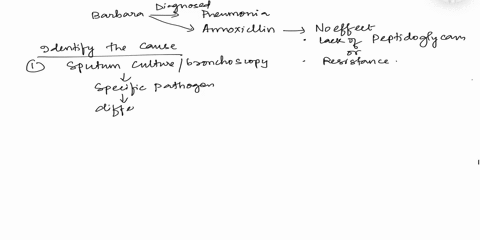 Diagnosed
Barbara → Pneumonia
→ Amoxicillin → No effect
• Lack of Peptidoglycan
or
• Resistance.
Identify the cause
① Sputum Culture / bronchoscopy
↓
Specific Pathogen
↓
diffe